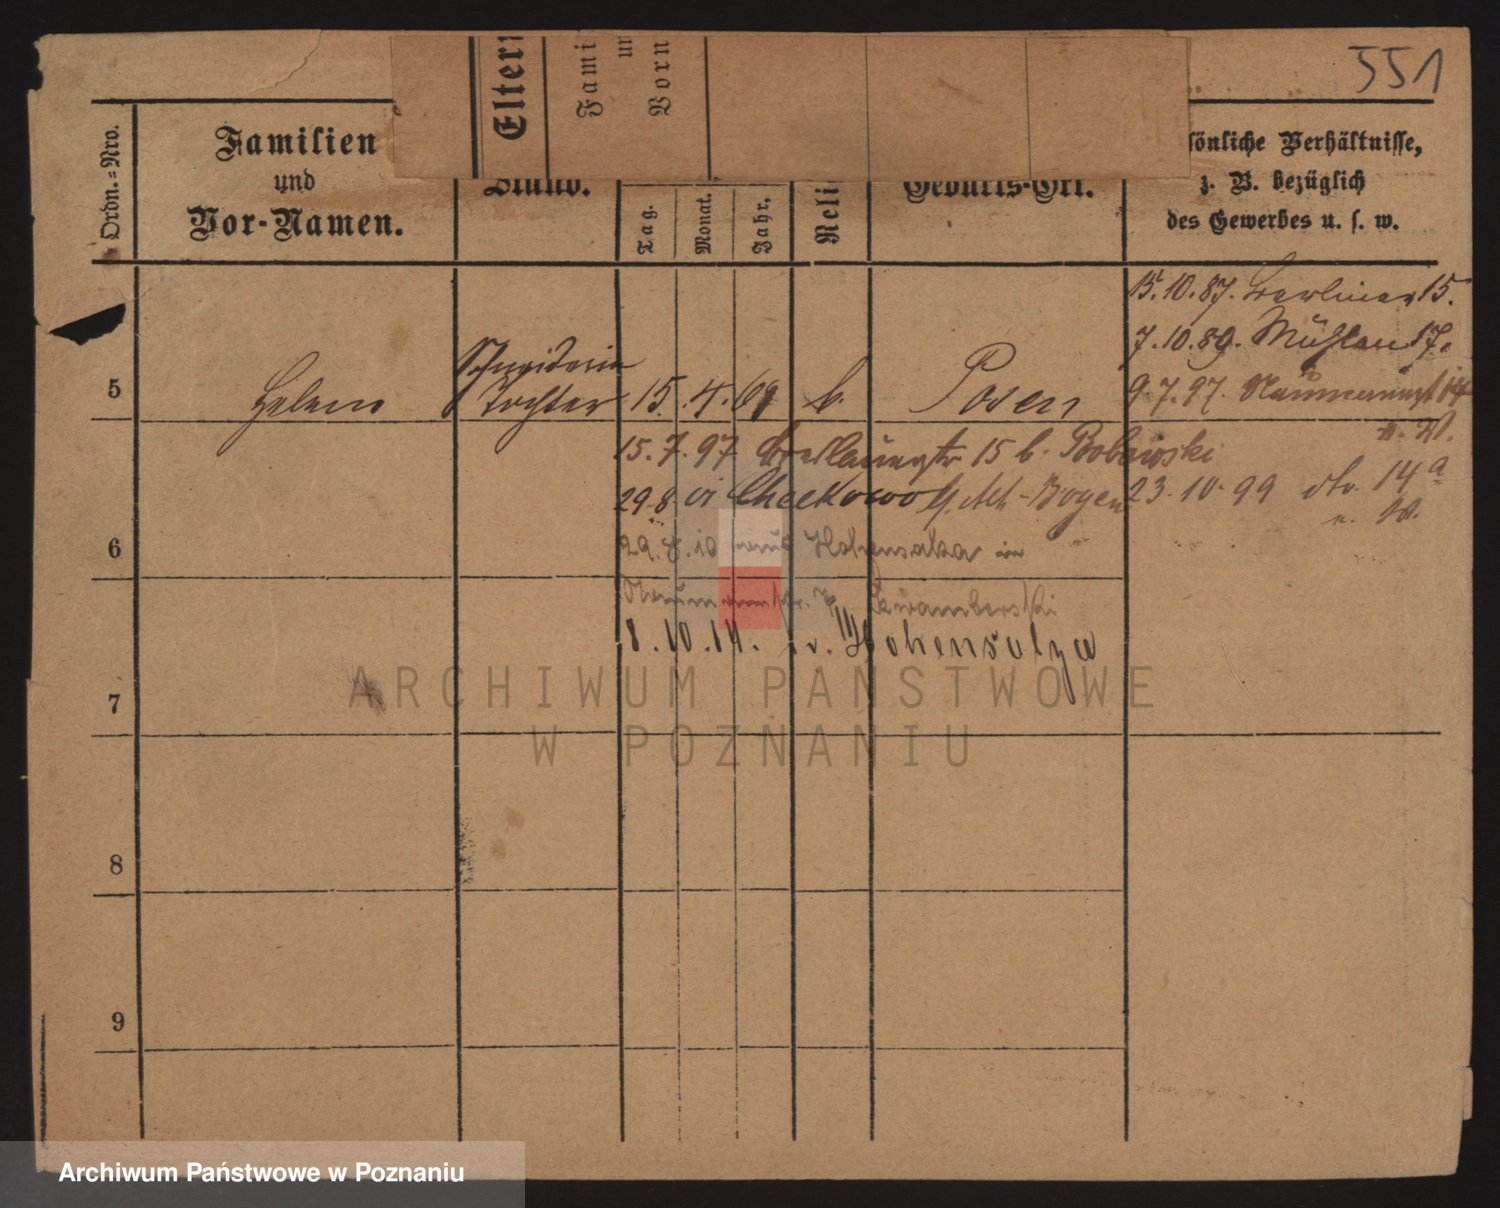 551
Eltern
Fami
un
Vorn
Ordn.=Nro.
Familien
und
Vor-Namen.
Stand.
Tag.
Monat.
Jahr.
Reli
Geburts-Ort.
sönliche Verhältnisse,
z. B. bezüglich
des Gewerbes u. s. w.
15.10.87. Berliner 15.
7.10.89. Mühlen 17.
Schneiderin
5 Helene Tochter 15. 4. 69 k. Posen 9.7.97. Naumannst 14
u. W.
15.7.97 Breslauerstr 15 b. Bobowski
29.8. 01 23.10.99 dto. 14a
u. W.
6 29. 8.10 Hohensalza in
8.10.14. v. Hohensalza
ARCHIWUM PAŃSTWOWE
7
W POZNANIU
8
9
Archiwum Państwowe w Poznaniu